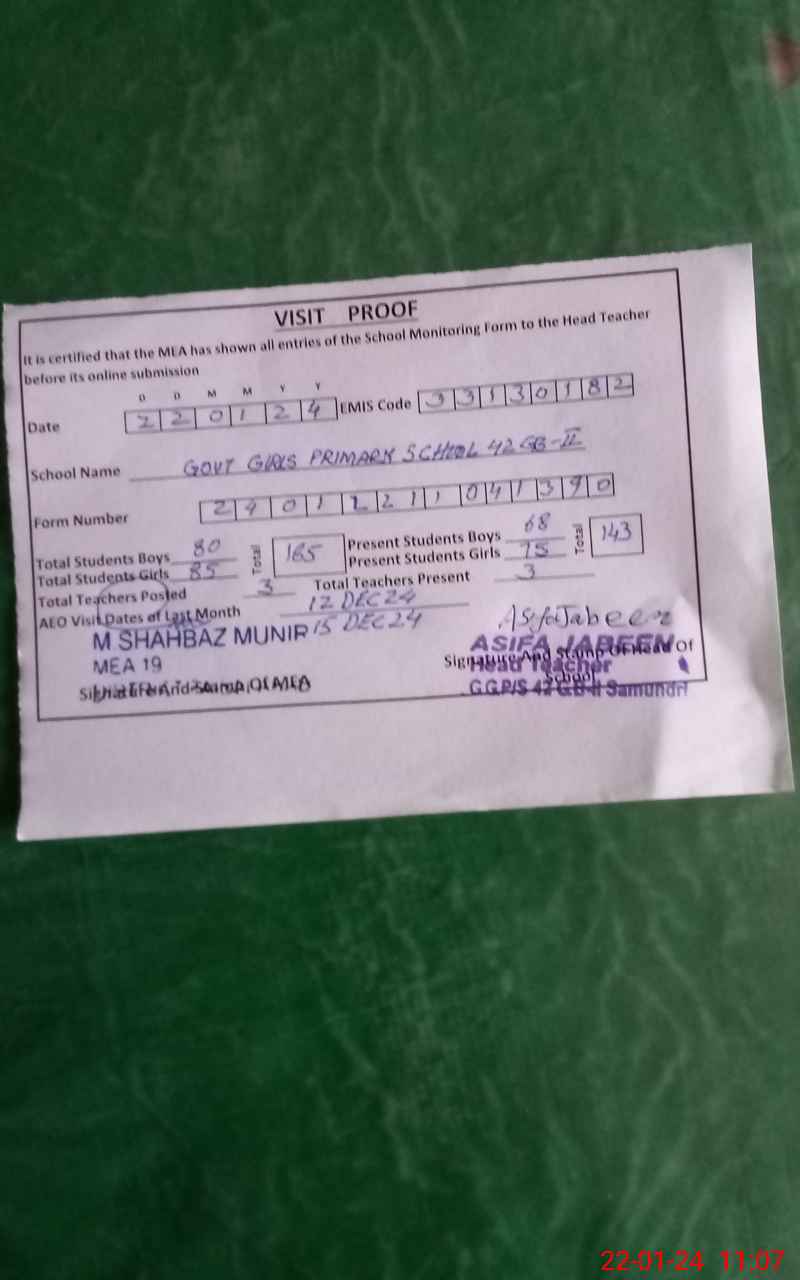 VISIT PROOF
It is certified that the MEA has shown all entries of the School Monitoring Form to the Head Teacher
before its online submission
D D M M Y Y
Date 2 2 0 1 2 4 EMIS Code 3 3 1 3 0 1 8 2
School Name GOVT GIRLS PRIMARY SCHOOL 42 GB-II
Form Number 2 4 0 1 1 2 1 1 0 4 1 3 9 0
Total Students Boys 80 Total 165 Present Students Boys 68 Total 143
Total Students Girls 85 Present Students Girls 75
Total Teachers Posted 3 Total Teachers Present 3
AEO Visit Dates of Last Month 12 DEC 24
15 DEC 24
M SHAHBAZ MUNIR Asifa Jabeen
MEA 19 ASIFA JABEEN
Signature And Stamp Of MEA Signature And Stamp Of Head Of
School
Head Teacher
G.G.P/S 42 G.B-II Samundri
22-01-24 11:07